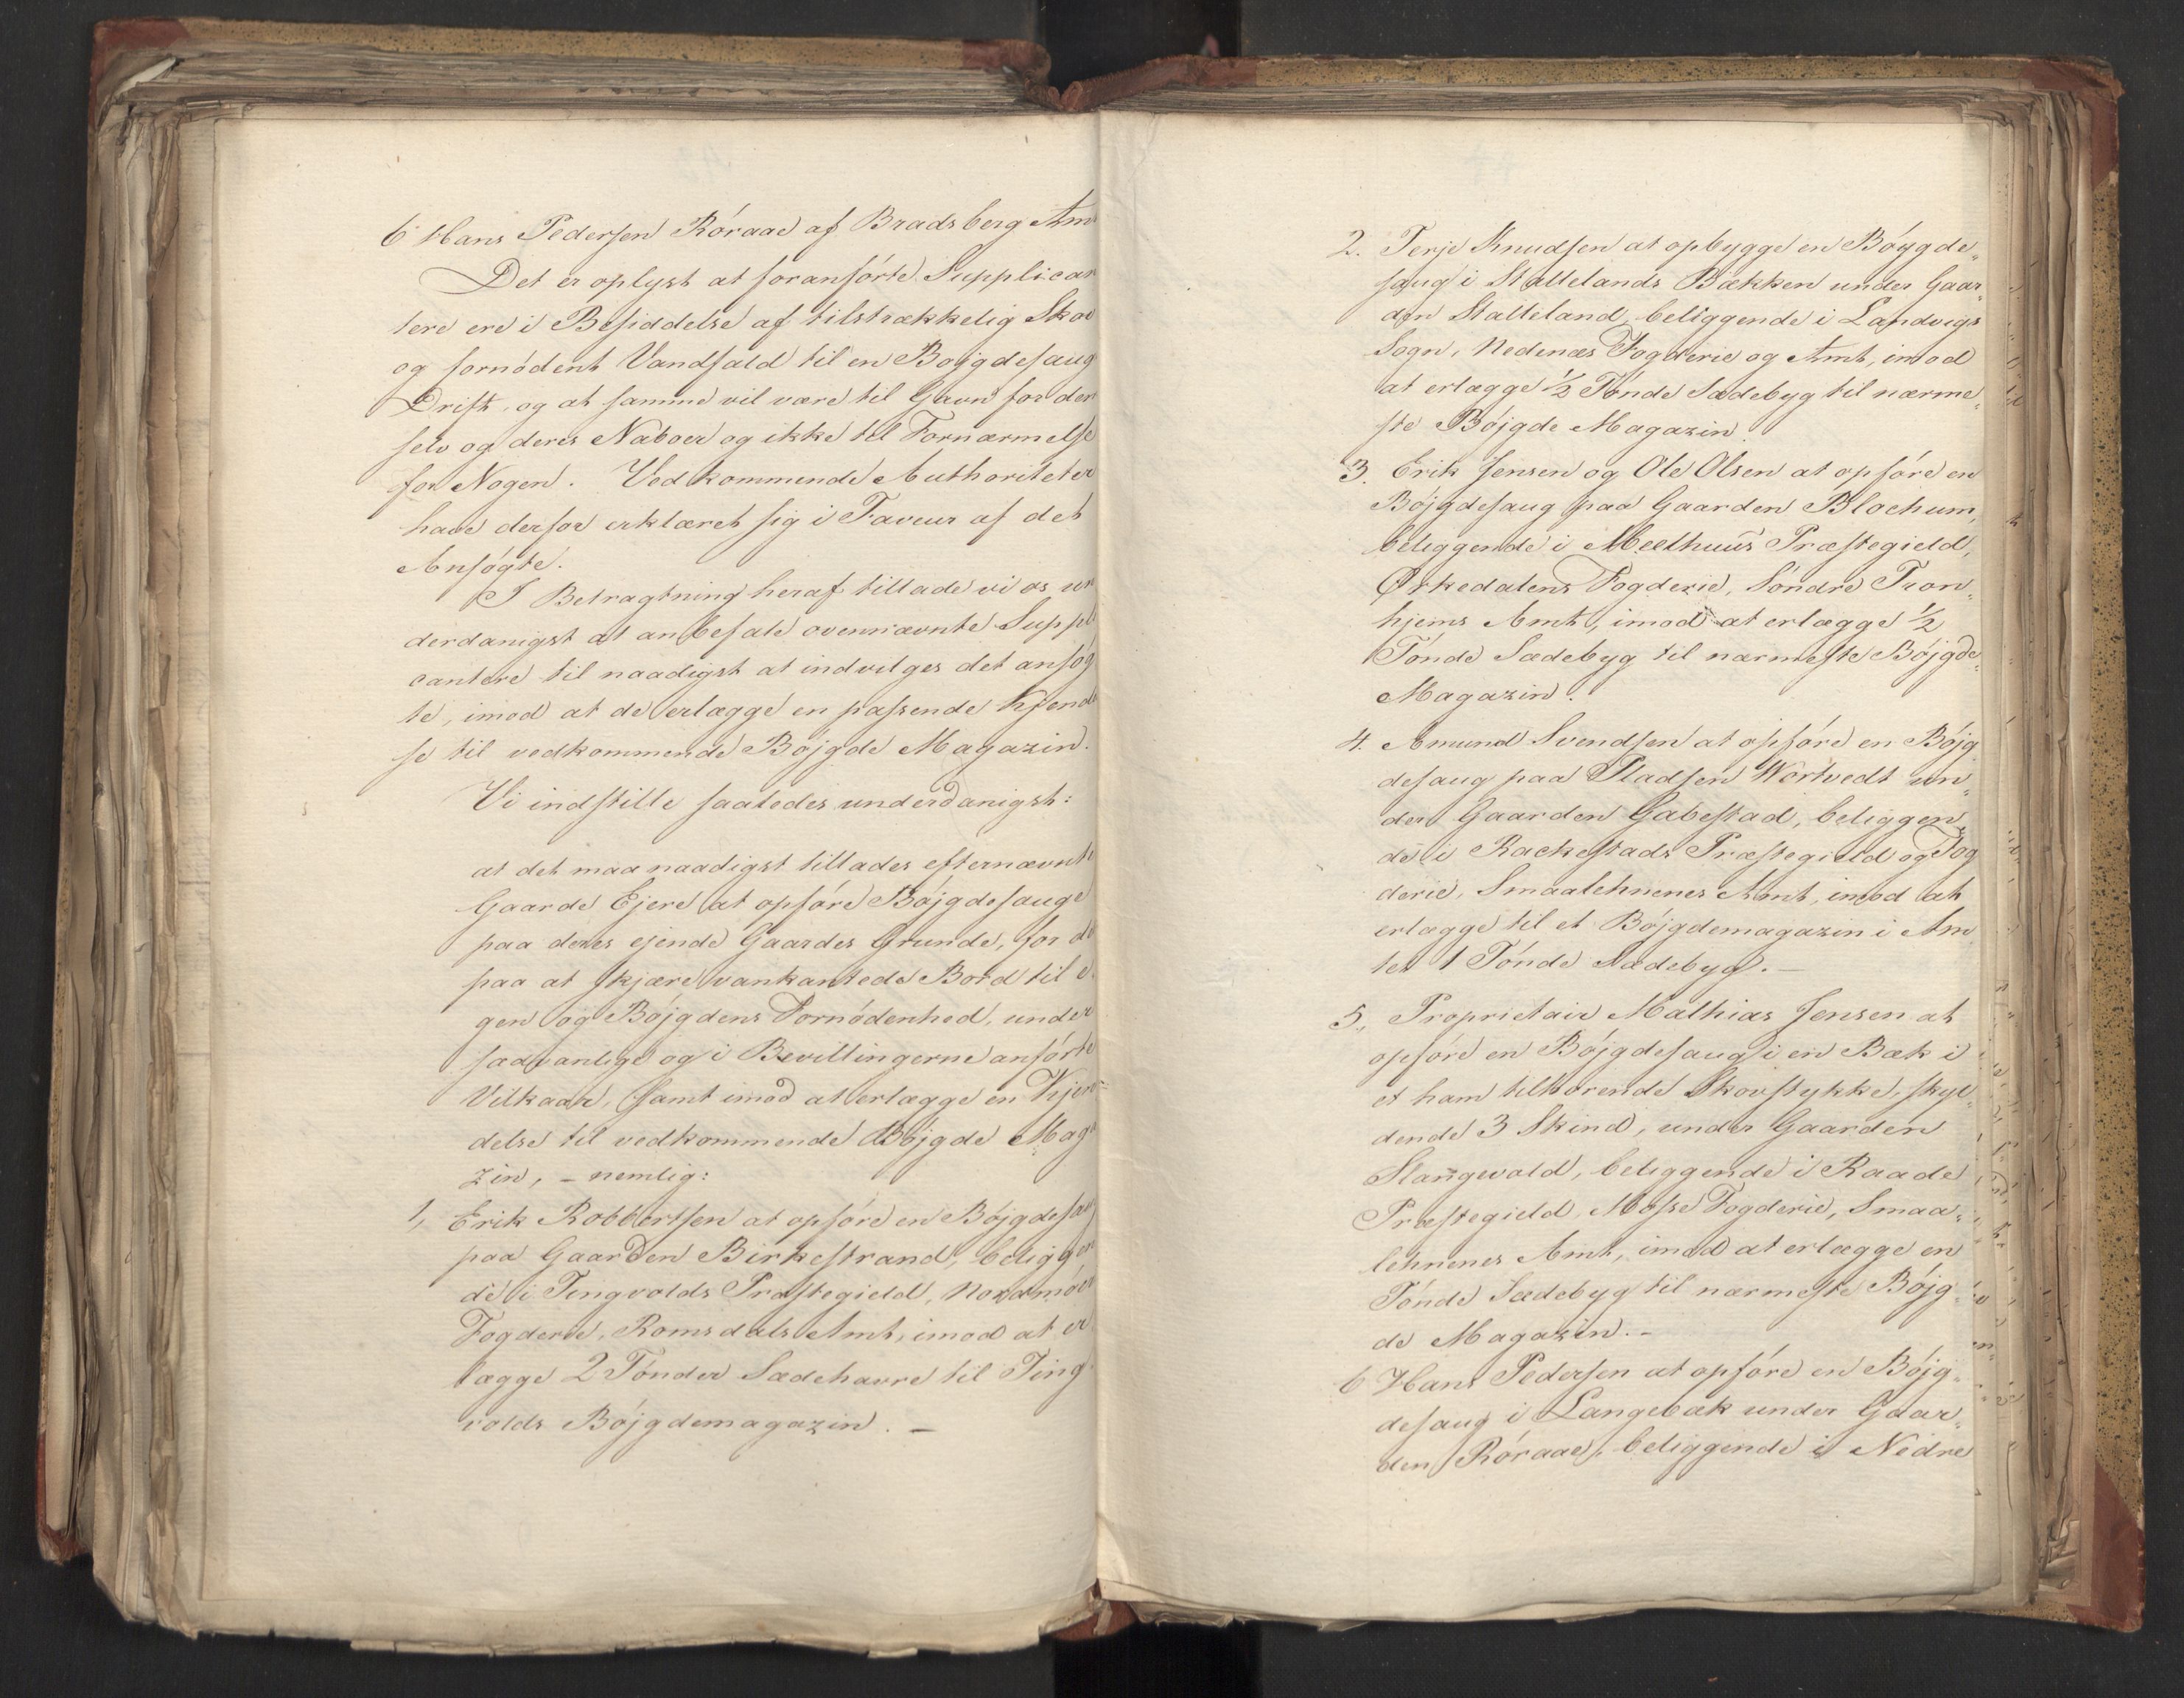 6 Hans Pedersen Röraae af Bradsberg Amt
Det er oplyst at foranförte Supplican
tere ere i Besiddelse af tilstrækkelig Skov
og fornödent Vandfald til en Bojgdesaug
Drift, og at samme vil være til Gavn for dem
selv og deres Naboer og ikke til Fornærmelse
for Nogen. Vedkommende Authoriteter
have derfor erklæret sig i Faveur af det
Ansögte.
I Betragtning heraf tillade vi os un
derdanigst at anbefale ovennævnte Suppli
cantere til naadigst at indvilges det ansög
te, imod at de erlægge en passende Kjendel
se til vedkommende Böjgde Magazin.
Vi indstille saaledes underdanigst:
at det maa naadigst tillades efternævnte
Gaarde Ejere at opföre Böjgdesauge
paa deres ejende Gaardes Grunde, for der
paa at skjære vankantede Bord til e
gen og Böjgdens Fornödenhed, under
saavanlige og i Bevillingerne anförte
Vilkaar, samt imod at erlægge en Kjen
delse til vedkommende Böjgde Maga
zin, - nemlig:
1, Erik Robbertsen at opföre en Böjgdesaug
paa Gaarden Birkestrand, beliggen
de i Tingvolds Præstegield, Nordmöer
Fogderie, Romsdals Amt, imod at er
lægge 2 Tönder Sædehavre til Ting
volds Böjgdemagazin. -
2. Terje Knudsen at opbygge en Böygde
saug i Stallelands Bækken under Gaar
den Stalleland, beliggende i Landvigs
Sogn, Nedenæs Fogderie og Amt, imod
at erlægge ½ Tönde Sædebyg til nærme
ste Böjgde Magazin.
3. Erik Jensen og Ole Olsen at opföre en
Böjgdesaug paa Gaarden Blochum,
beliggende i Meelhuus Præstegield,
Ørkedalens Fogderie, Söndre Tron
hjems Amt, imod at erlægge ½
Tönde Sædebyg til nærmeste Böjgde
Magazin.
4. Amund Svendsen at opföre en Böjg
desaug paa Pladsen Wortvedt un
der Gaarden Gabestad, beliggen
de i Rackestads Præstegield og Fog
derie, Smaalehnenes Amt, imod at
erlægge til et Böjgdemagazin i Am
tet 1 Tönde Sædebyg. -
5, Proprietair Mathias Jensen at
opföre en Böjgdesaug i en Bæk i
et ham tilhörende Skovstykke, skyl
dende 3 Skind, under Gaarden
Slangwold, beliggende i Raade
Præstegield, Mosse Fogderie, Smaa
lehnenes Amt, imod at erlægge en
Tönde Sædebyg til nærmeste Böjg
de Magazin. -
6 Hans Pedersen at opföre en Böjg
desaug i Langebæk under Gaar
den Röraae, beliggende i Nedre